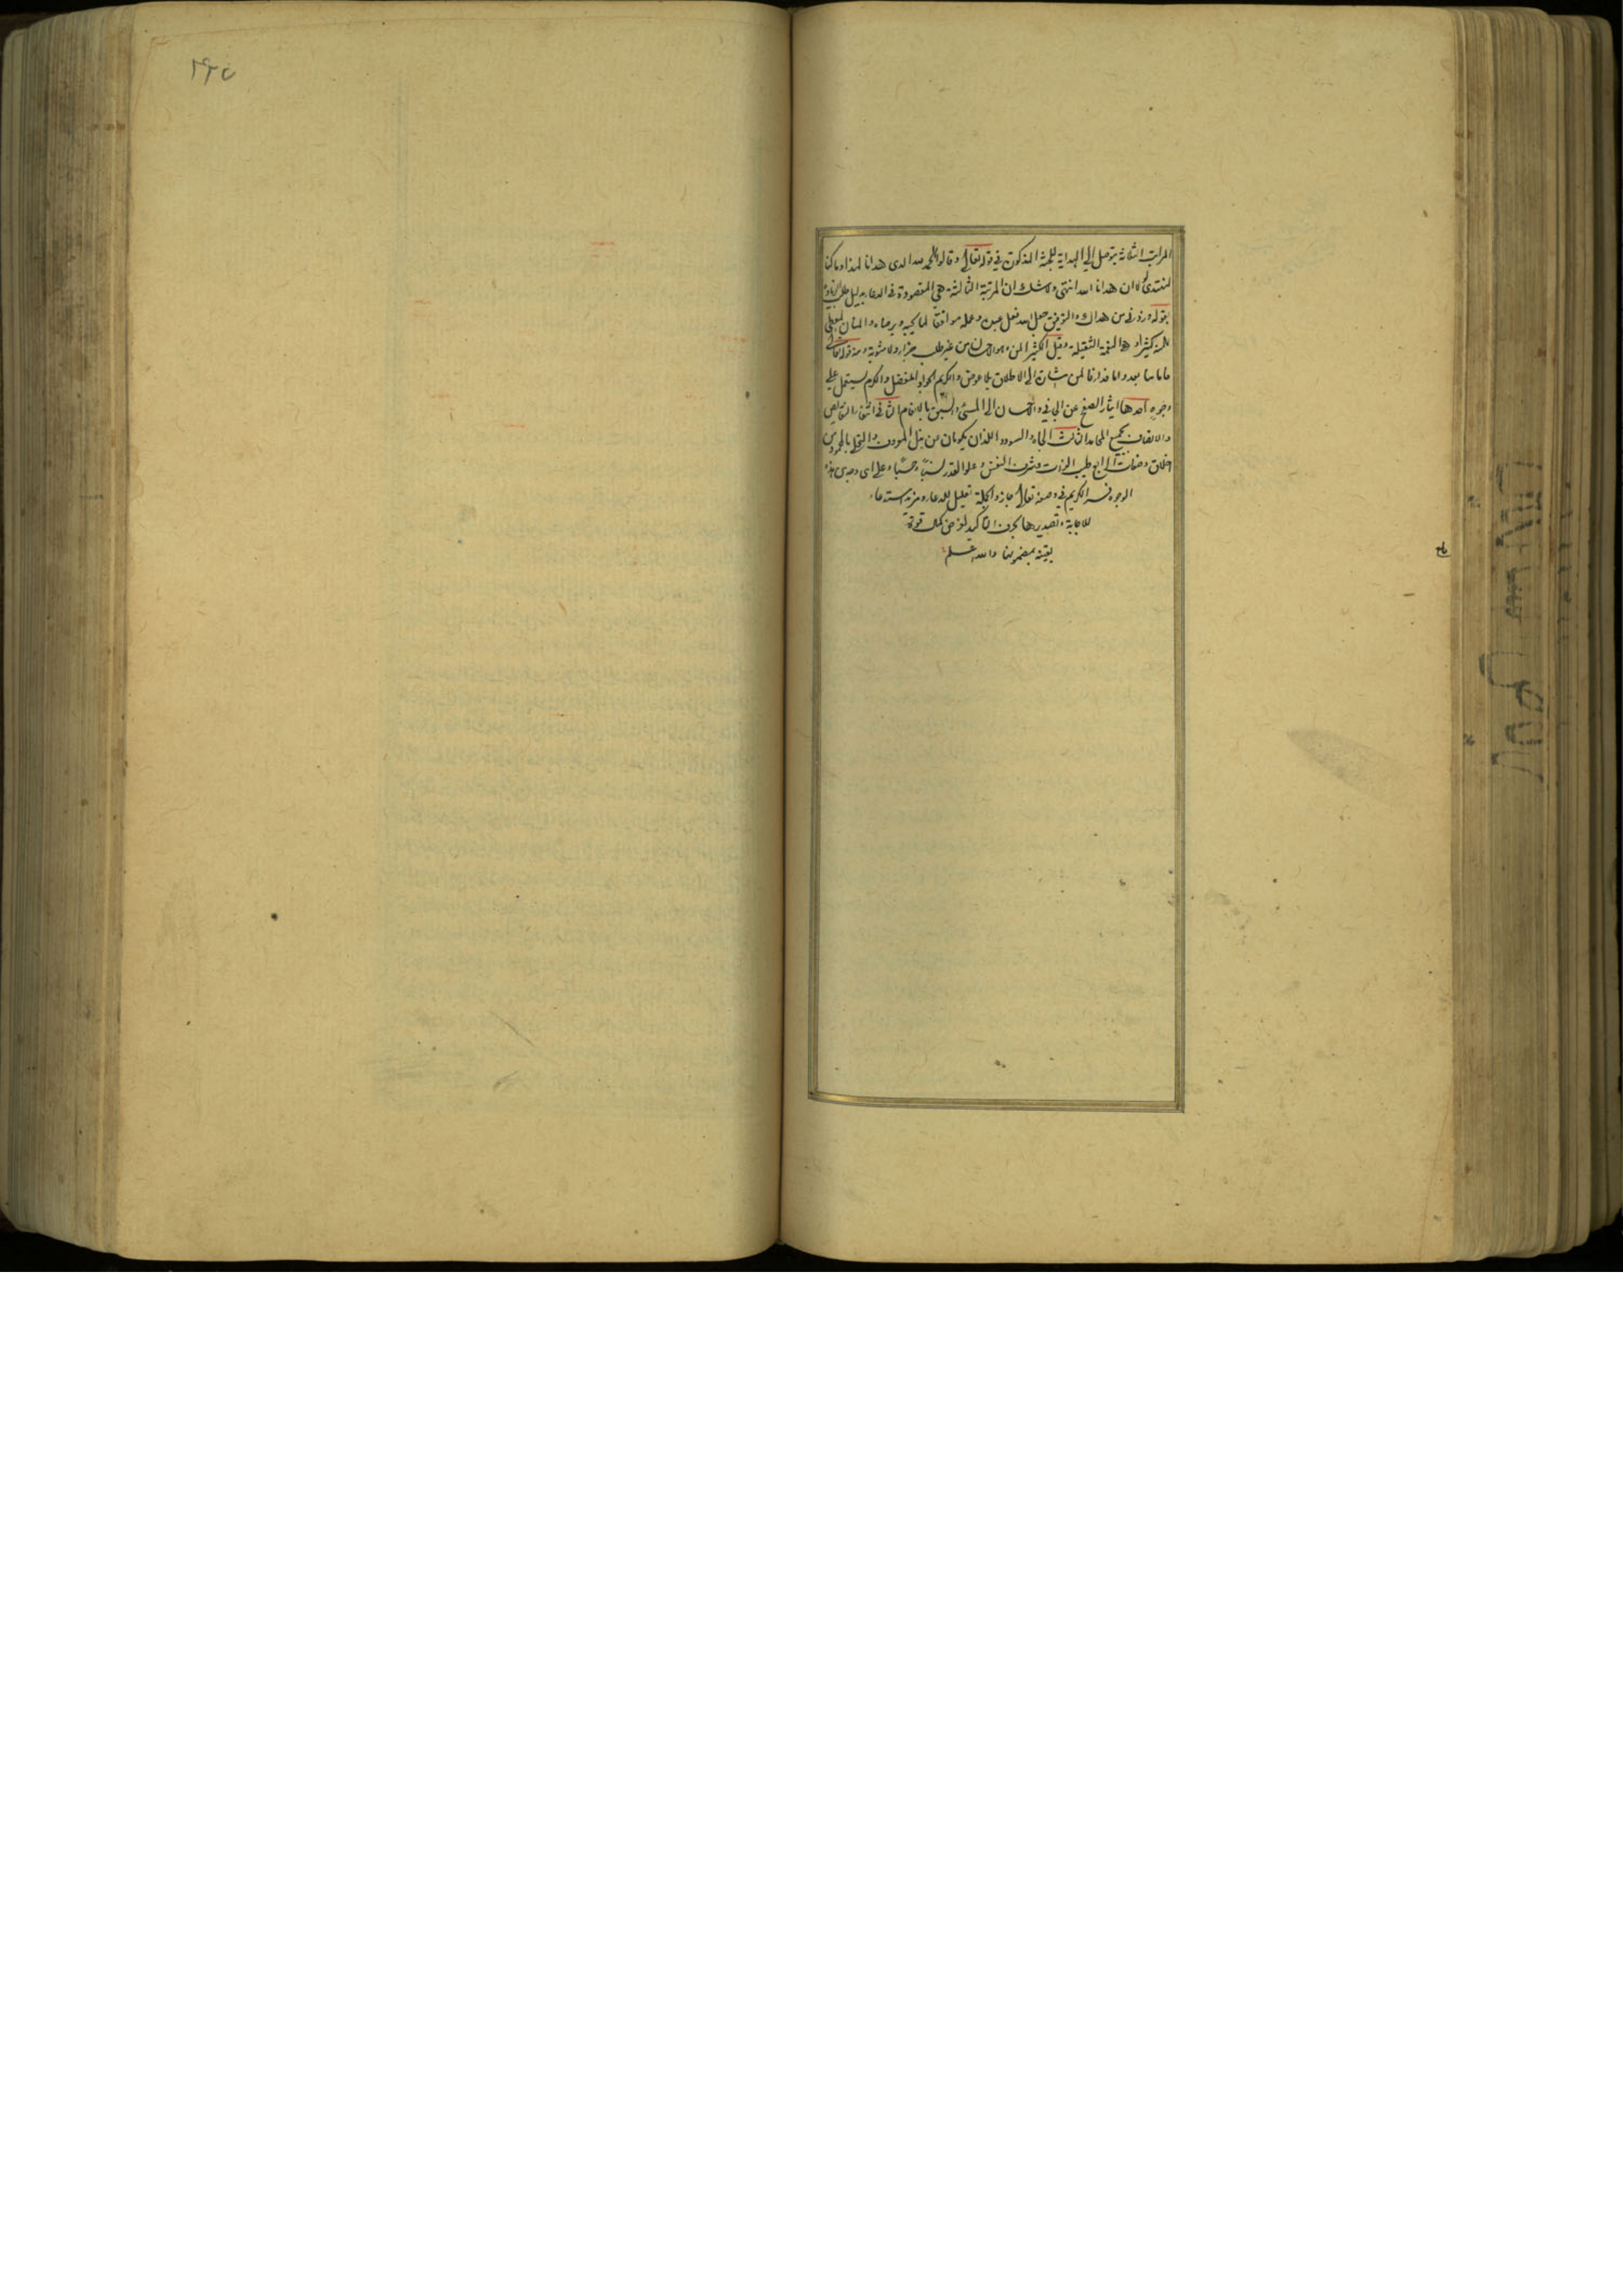 المراتب الثلاثة يتوصل الى الهداية للجنة المذكورة في قوله تعالى وقالوا الحمد لله الذى هدانا لهذا وما كنا
لنهتدى لولا ان هدانا الله انتهى ولا شك ان المرتبة الثالثة هي المقصودة في الدعاء بدليل طلب الزيادة
بقوله وزدنى من هداك والتوفيق جعل الله فعل عبده وعمله موافقا لما يحبه ويرضاه والمنان المعطى
المنة كثيرا وهي النعمة الثقيلة وقيل الكثير المن وهو الاحسان من غير طلب جزاء ولا مثوبة ومنه قوله تعالى
فاما منا بعد واما فداء فالمن اشارة الى الاطلاق بلا عوض والكريم الجواد المتفضل والكرم يستعمل على
وجوه احدها ايثار الصفح عن الجانى والاحسان الى المسئ والسبق بالانعام الثانى انتفاء النقايص
والاتصاف بجميع المحامد الثالث الجاه والسودد اللذان يكونان من بذل المعروف والتحلى بالمحمود من
اخلاق وصفات الرابع طيب الذات وشرف النفس وعلو القدر نسبا وحسبا وعلى اى وجه من هذه
الوجوه فسر الكريم في وصفه تعالى جاز والجملة تعليل للدعاء ومزيد استدعاء
للاجابة وتصديرها بحرف التاكيد لغرض كمال قوة
يقينه بمضمونها والله اعلم